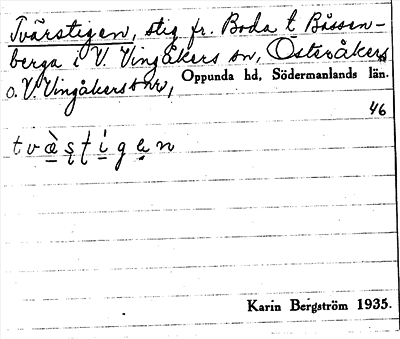 Tvärstigen, stig fr. Boda t. Bässen-
berga i V. Vingåkers sn, Österåkers
o. V. Vingåkers snr, Oppunda hd, Södermanlands län.
46
tvä̀ṣṭígen
Karin Bergström 1935.